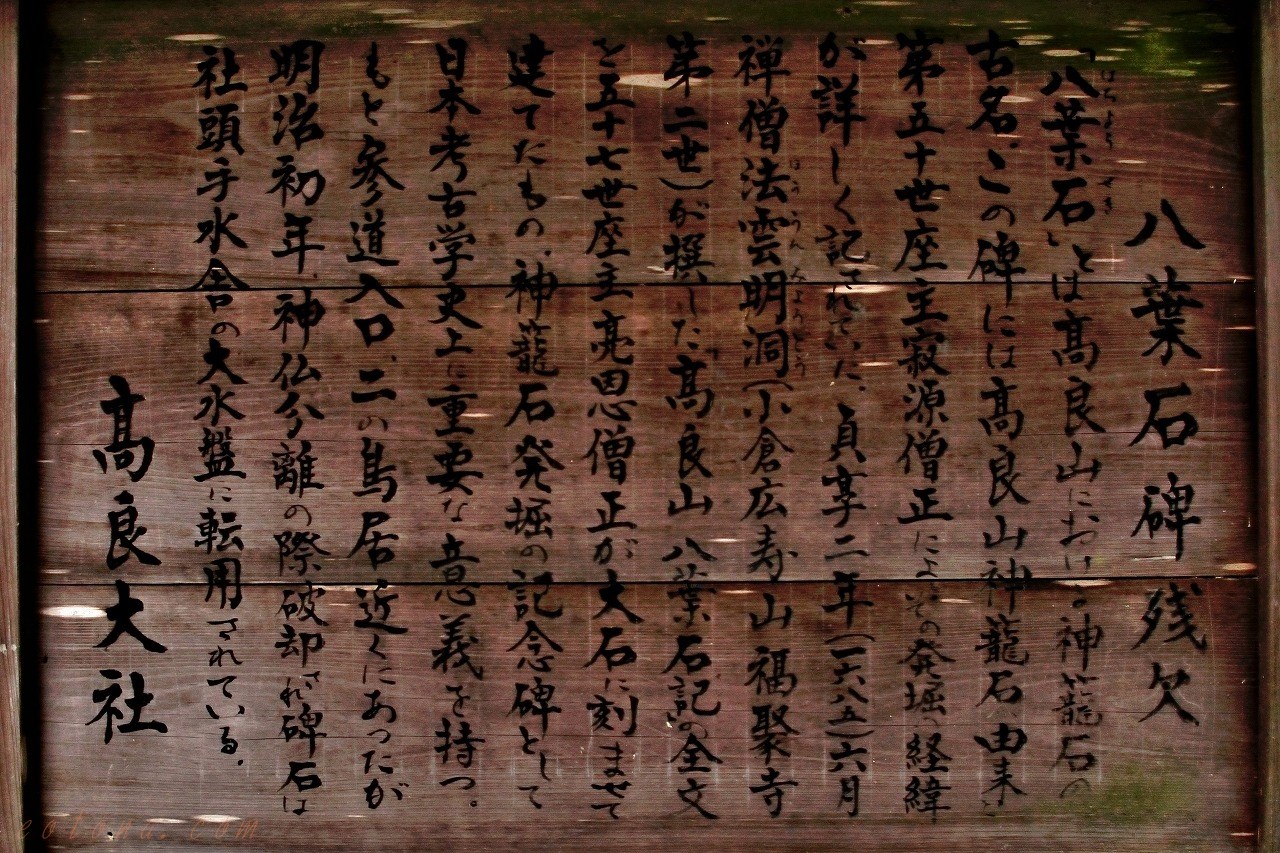 八葉石碑残欠
「八葉石」とは高良山における神籠石の
はちようせき
古名。この碑には高良山神籠石、由来、
第五十世座主寂源僧正による発掘の経緯
が詳しく記されていた。貞享二年(一六八五)六月
禅僧法雲明洞(小倉広寿山福聚寺
ほううんみょうどう
第二世)が撰した「高良山八葉石記」の全文
を五十七世座主亮恩僧正が大石に刻ませて
建てたもの。神籠石発掘の記念碑として
日本考古学史上に重要な意義を持つ。
もと参道入口、二の鳥居近くにあったが
明治初年、神仏分離の際破却され碑石は
社頭手水舎の大水盤に転用されている。
高良大社